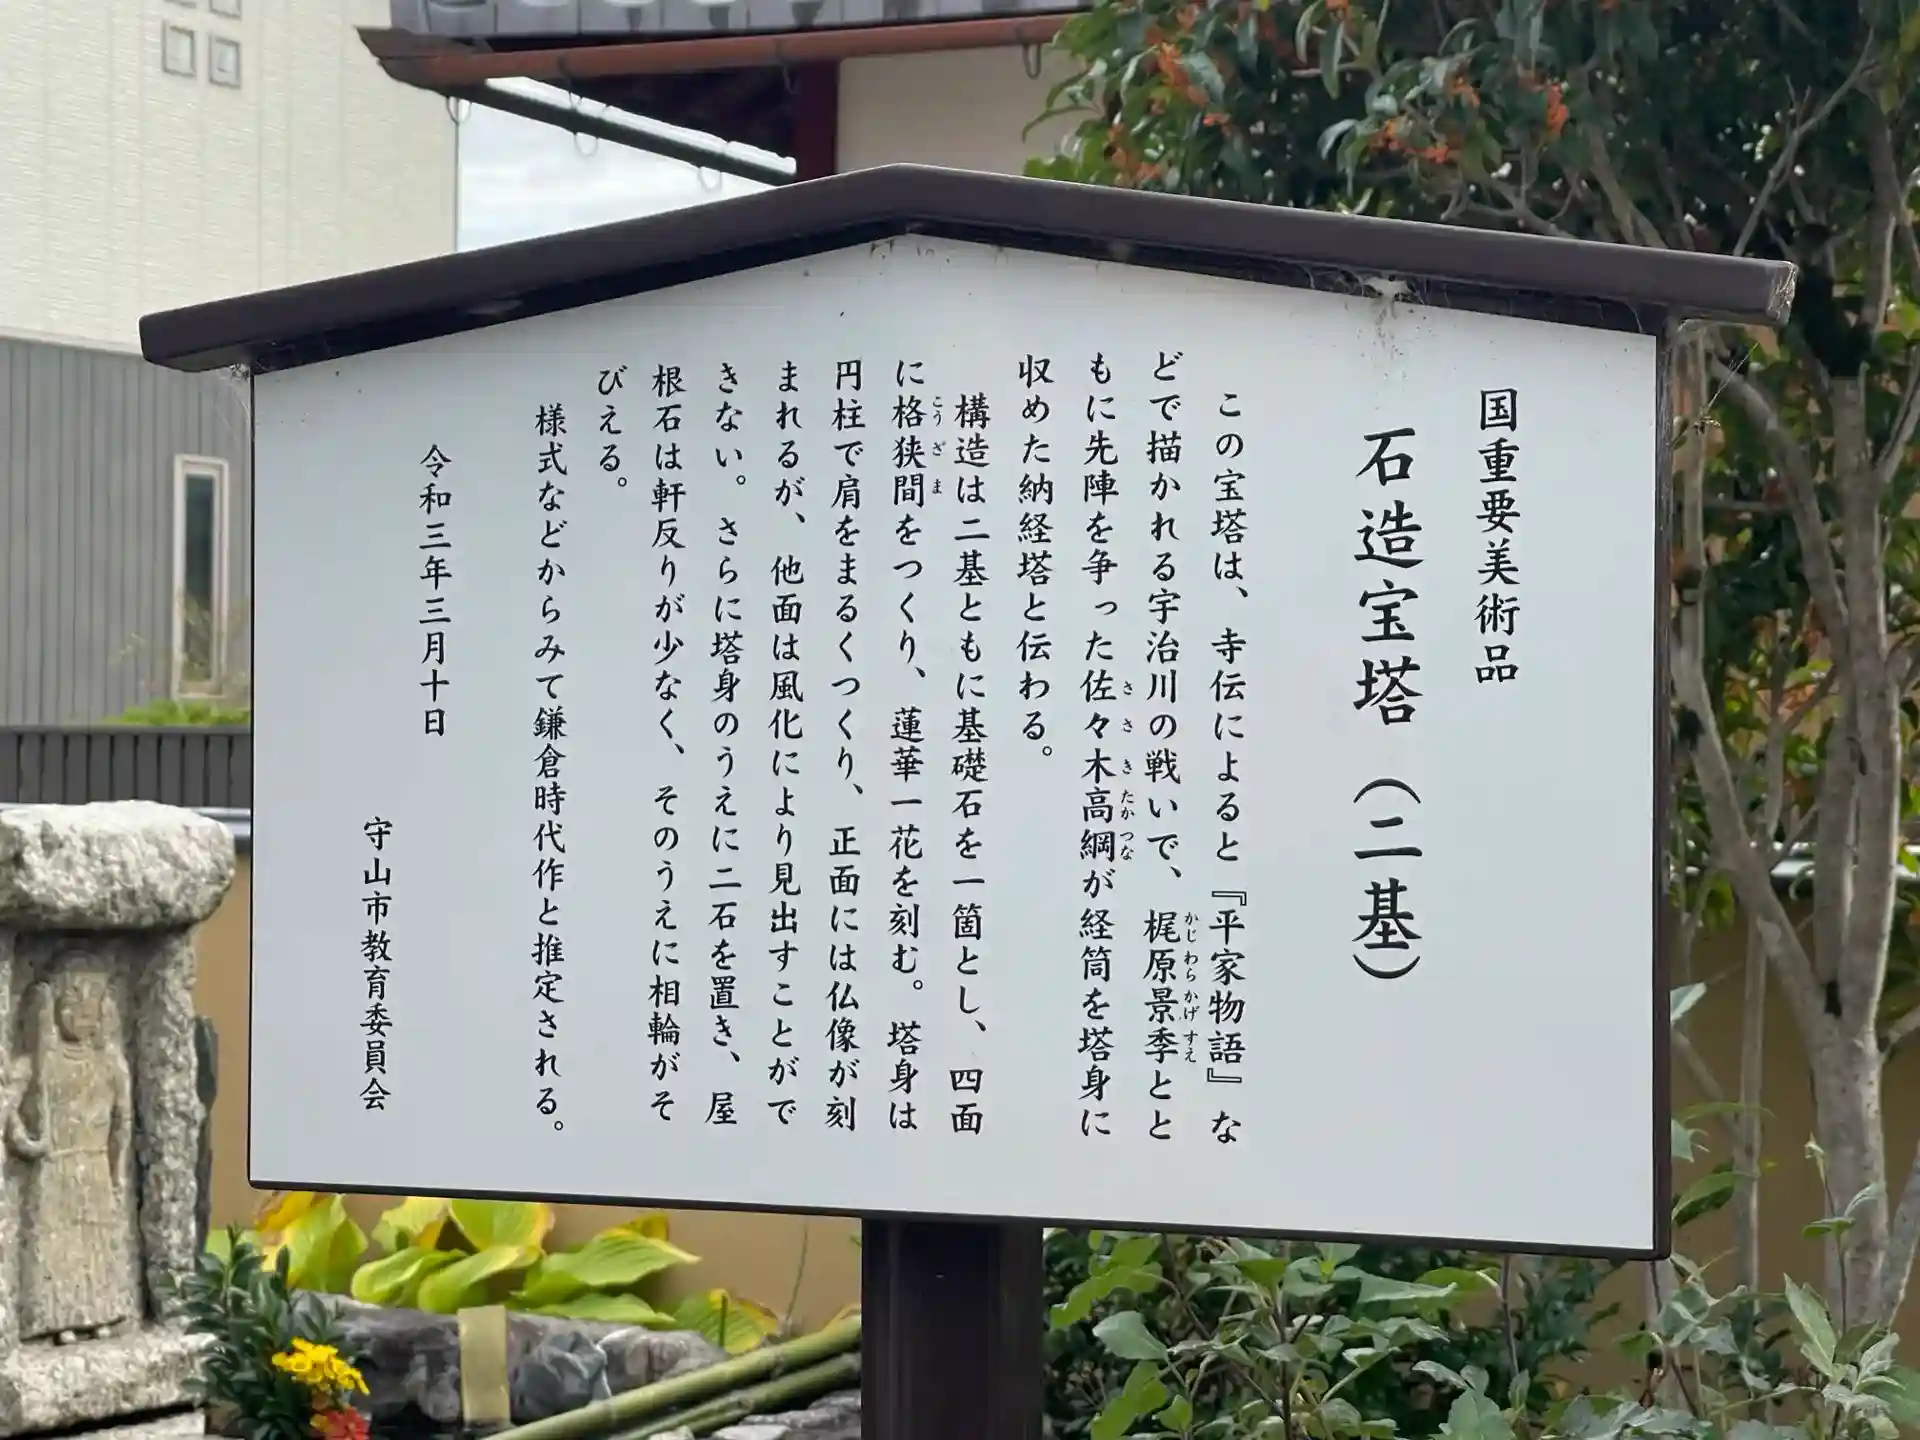 国重要美術品
石造宝塔（二基）
この宝塔は、寺伝によると『平家物語』な
どで描かれる宇治川の戦いで、梶原景季とと
かじわらかげすえ
もに先陣を争った佐々木高綱が経筒を塔身に
ささきたかつな
収めた納経塔と伝わる。
構造は二基ともに基礎石を一箇とし、四面
に格狭間をつくり、蓮華一花を刻む。塔身は
こうざま
円柱で肩をまるくつくり、正面には仏像が刻
まれるが、他面は風化により見出すことがで
きない。さらに塔身のうえに二石を置き、屋
根石は軒反りが少なく、そのうえに相輪がそ
びえる。
様式などからみて鎌倉時代作と推定される。
令和三年三月十日
守山市教育委員会